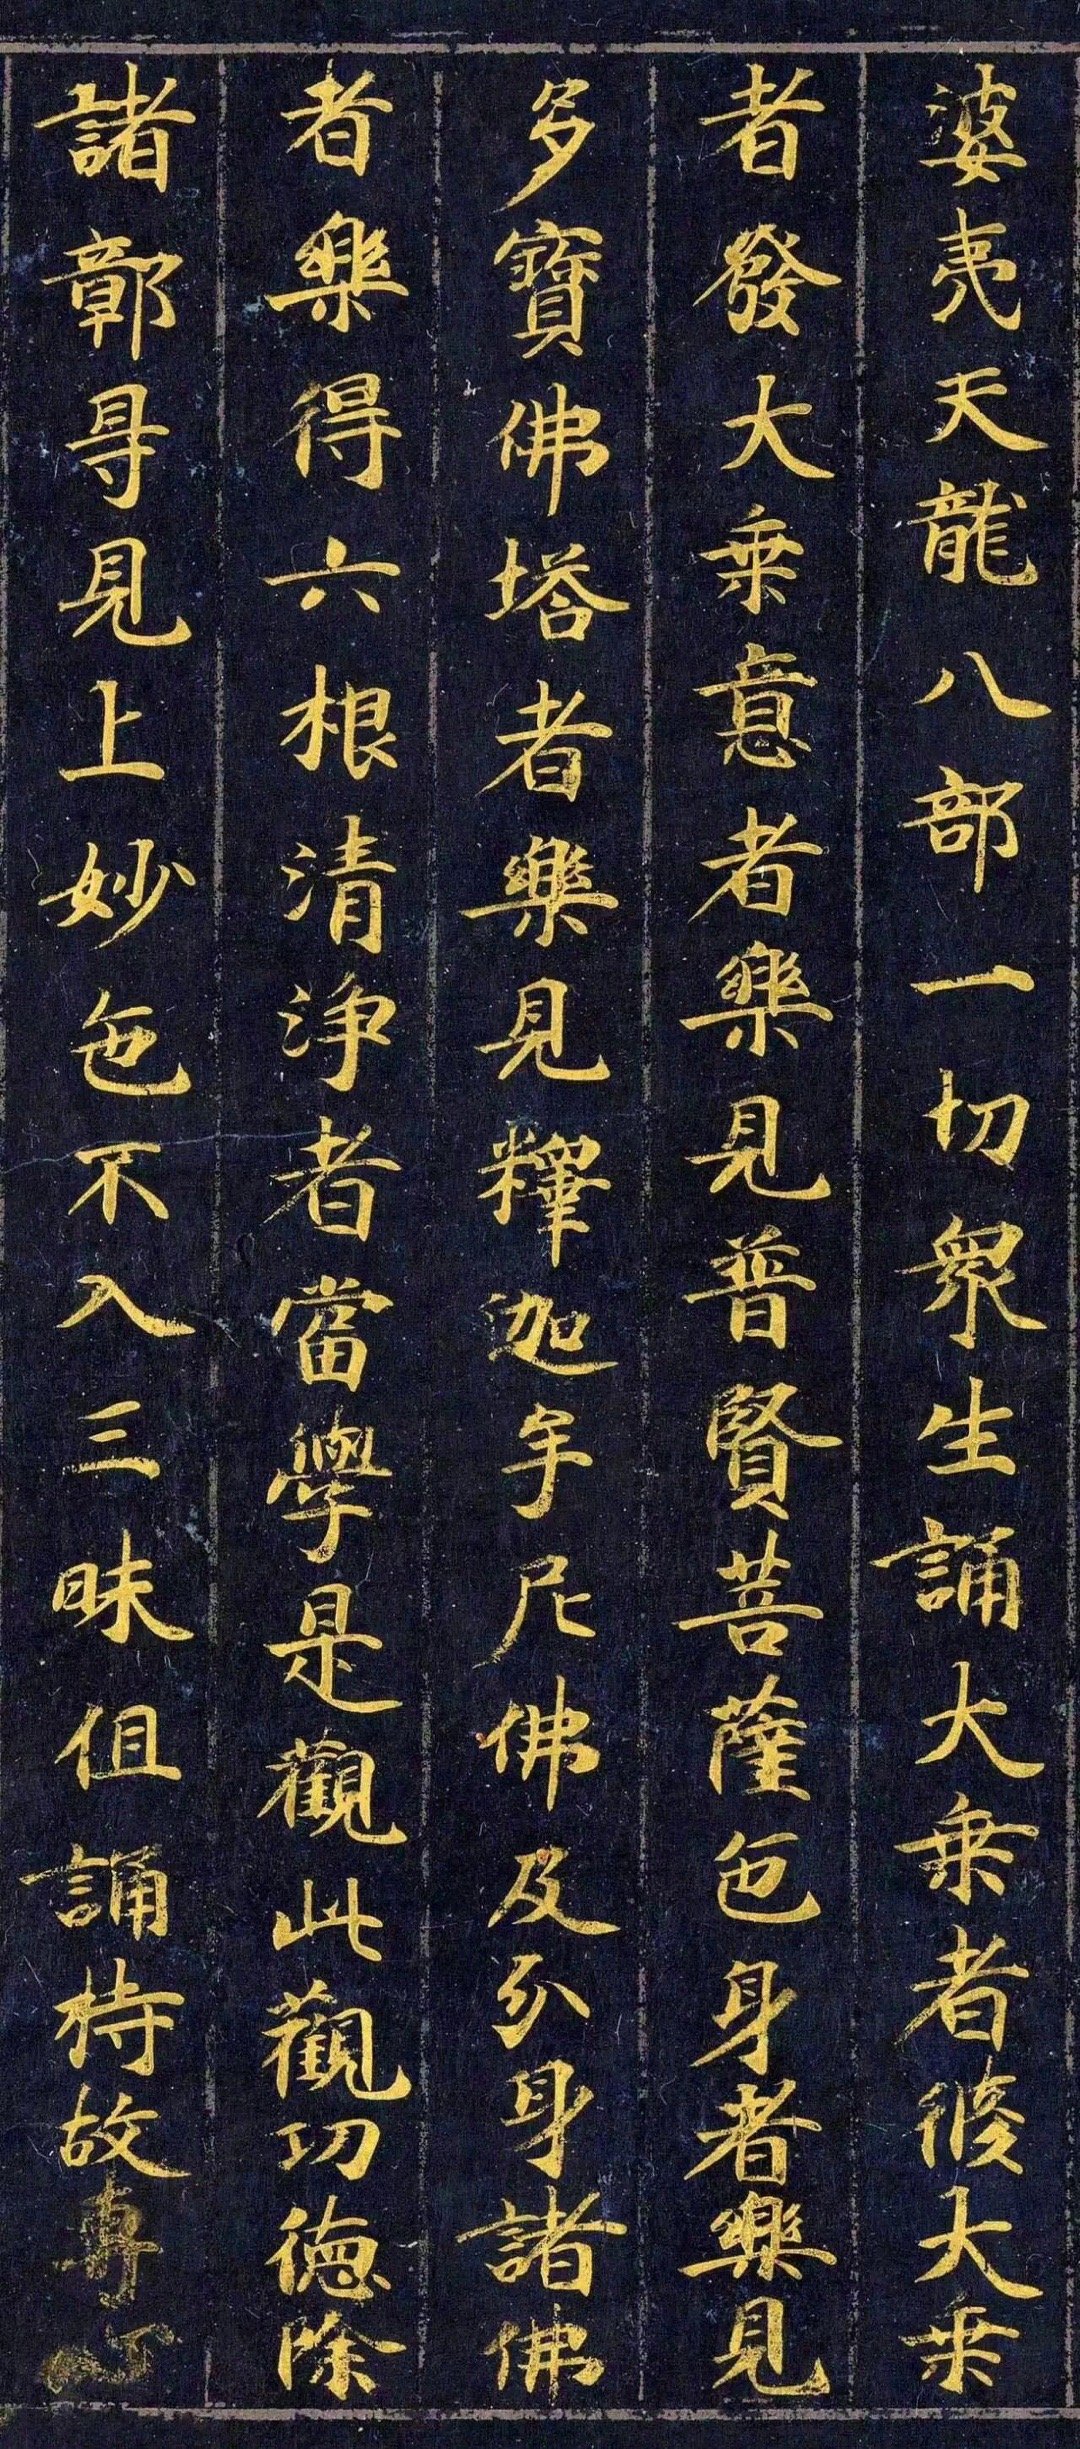 婆夷天龍八部一切衆生誦大乗者脩大乗
者發大乗意者樂見普賢菩薩色身者樂見
多寶佛塔者樂見釋迦牟尼佛及分身諸佛
者樂得六根清淨者當學是觀此觀功徳除
諸鄣㝵見上妙色不入三昧但誦持故專心